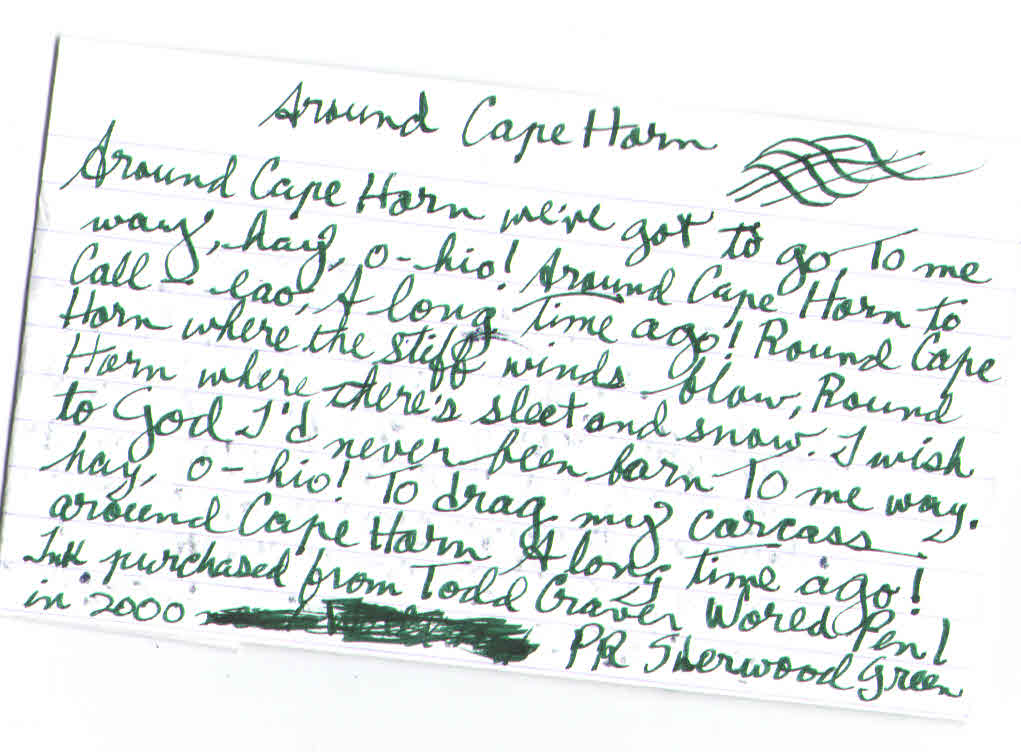 Around Cape Horn
Around Cape Horn we've got to go, To me
way, hay, o-hio! Around Cape Horn to
Call - eao, A long time ago! Round Cape
Horn where the stiff winds blow, Round
Horn where there's sleet and snow. I wish
to God I'd never been born To me way.
hay, o-hio! To drag my carcass
around Cape Horn A long time ago!
Ink purchased from Todd Graver World Pen!
in 2000 PR Sherwood Green